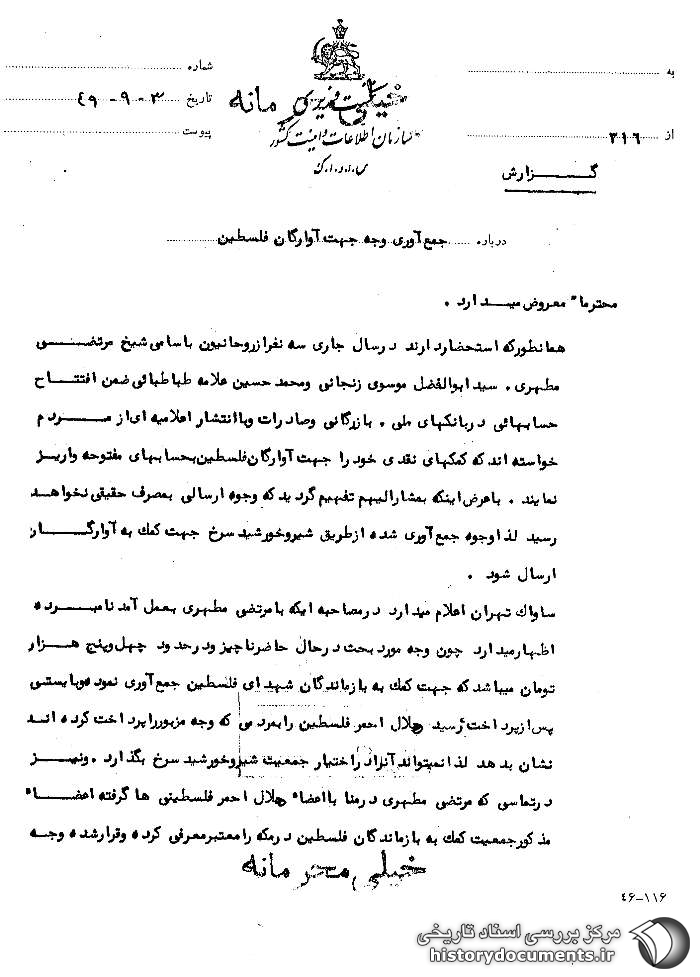 به
شماره
خیلی محرمانه
نخست وزیری
تاریخ ۳-۹-۴۹
سازمان اطلاعات و امنیت کشور
از ۳۱۶
پیوست
س.ا.و.ا.ک
گزارش
درباره جمع‌آوری وجه جهت آوارگان فلسطین
محترما" معروض میدارد .
همانطورکه استحضاردارند درسال جاری سه نفرازروحانیون باسامی شیخ مرتضی
مطهری . سید ابوالفضل موسوی زنجانی ومحمد حسین علامه طباطبائی ضمن افتتاح
حسابهائی دربانکهای ملی . بازرگانی وصادرات وباانتشار اعلامیه ای از مردم
خواسته اند که کمکهای نقدی خود را جهت آوارگان فلسطین بحسابهای مفتوحه واریز
نمایند . باعرض اینکه بمشارالیهم تفهیم گردید که وجوه ارسالی بمصرف حقیقی نخواهد
رسید لذا وجوه جمع‌آوری شده ازطریق شیروخورشید سرخ جهت کمک به آوارگان
ارسال شود .
ساواک تهران اعلام میدارد درمصاحبه ایکه با مرتضی مطهری بعمل آمد نامبرده
اظهارمیدارد چون وجه مورد بحث درحال حاضرناچیز ودرحدود چهل وپنج هزار
تومان میباشد که جهت کمک به بازماندگان شهدای فلسطین جمع‌آوری نموده وبایستی
پس ازپرداخت رسید هلال احمر فلسطین رابمردمی که وجه مزبورراپرداخت کرده اند
نشان بدهد لذا نمیتواند آنرادراختیار جمعیت شیروخورشید سرخ بگذارد . ونیز
درتماسی که مرتضی مطهری درمنا بااعضاء هلال احمر فلسطینی ها گرفته اعضاء
مذکورجمعیت کمک به بازماندگان فلسطین درمکه رامعتبرمعرفی کرده وقرارشده وجه
خیلی محرمانه
۱۱۶-۴۶
مرکز بررسی اسناد تاریخی
historydocuments.ir